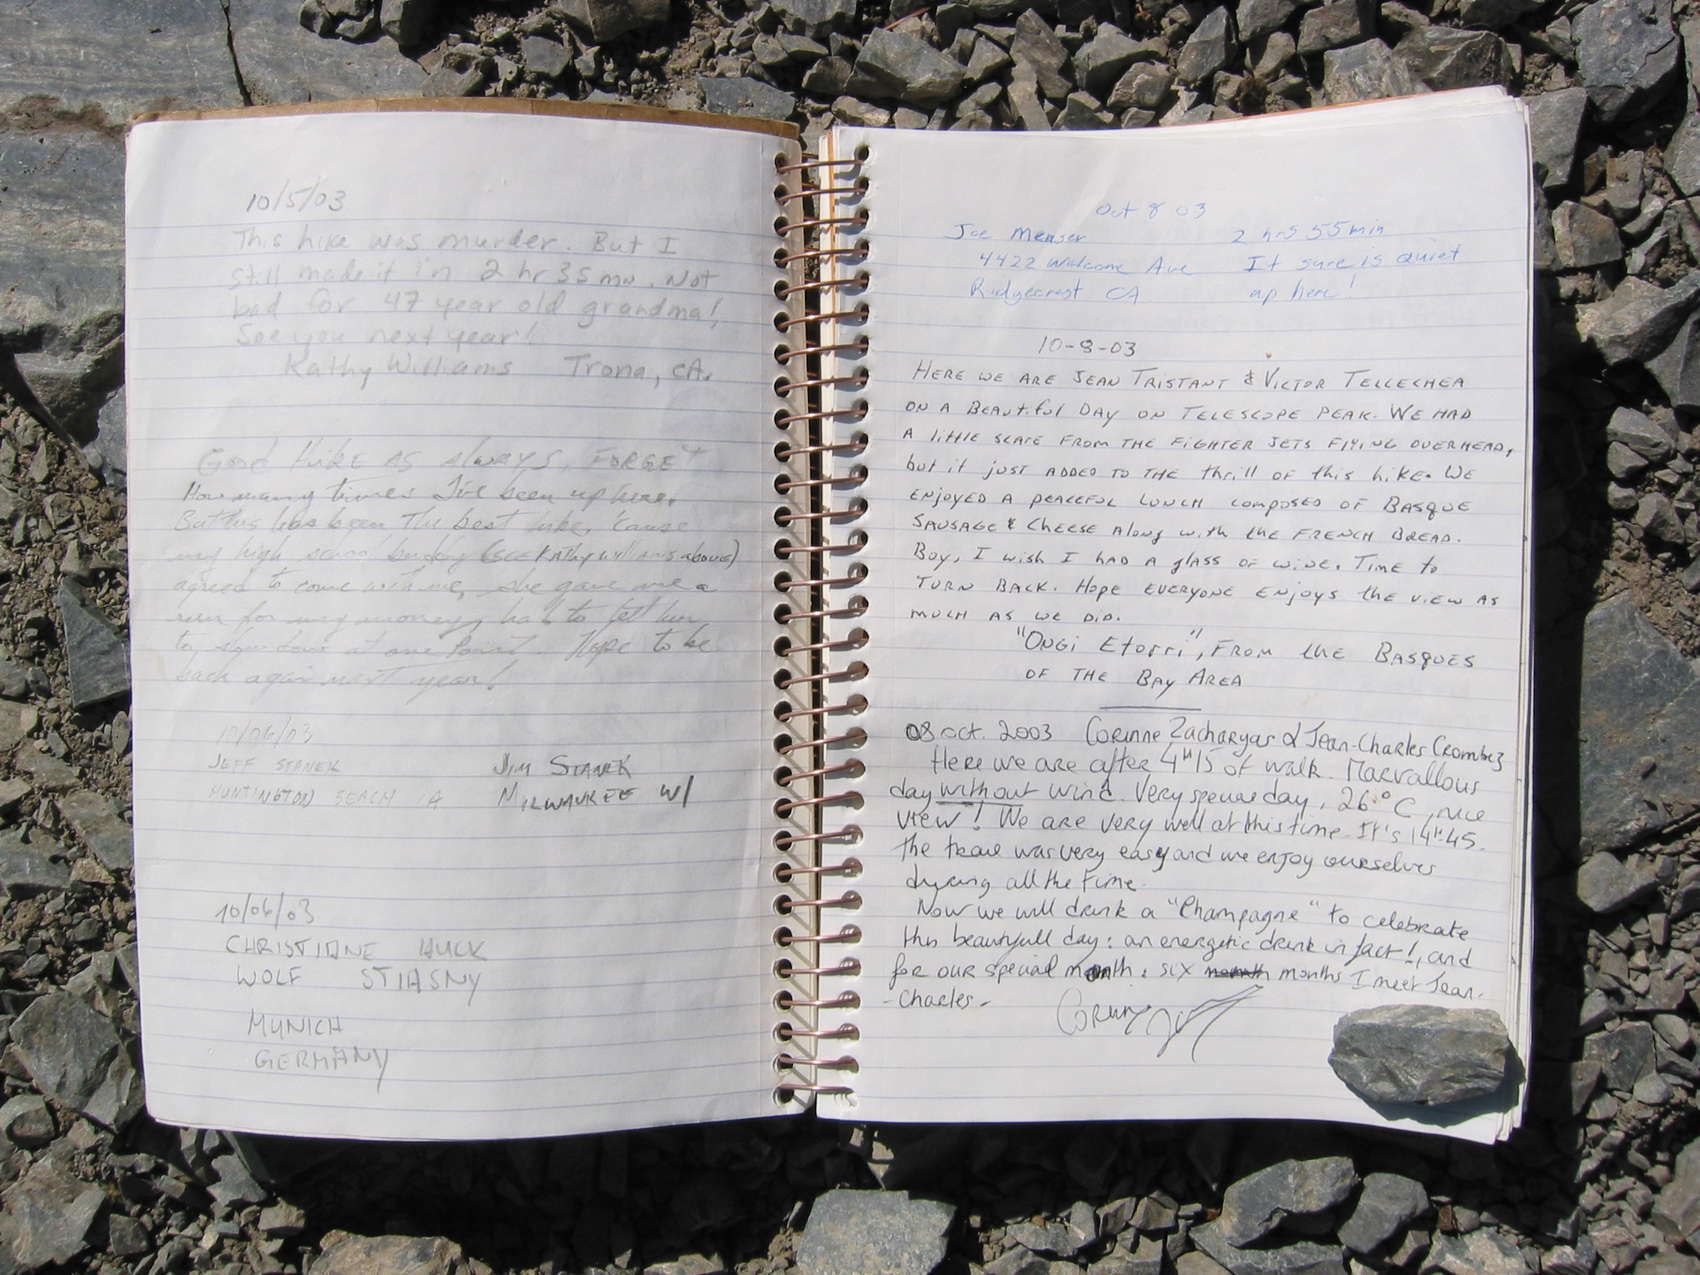 10/5/03
This hike was murder. But I
still made it in 2 hr 35 mn. Not
bad for 47 year old grandma!
See you next year!
Kathy Williams Trona, CA.
Good Hike AS Always, FORGET
How many times I've been up here.
But this has been The best hike, 'cause
my high school buddy (SEE Kathy Williams above)
agreed to come with me, she gave me a
run for my money, had to tell her
to slow down at one point. Hope to be
back again next year!
10/06/03
JEFF STANEK
HUNTINGTON BEACH CA
JIM STANEK
MILWAUKEE WI
10/06/03
CHRISTIANE HUCK
WOLF STIASNY
MUNICH
GERMANY
Oct 8 03
Joe Menser 2 hrs 55 min
4422 Welcome Ave It sure is quiet
Ridgecrest CA up here!
10-8-03
HERE WE ARE JEAN TRISTANT & VICTOR TELLECHEA
ON A BEAUTIFUL DAY ON TELESCOPE PEAK. WE HAD
A LITTLE SCARE FROM THE FIGHTER JETS FLYING OVERHEAD,
but it just ADDED TO THE thrill OF this hike. WE
ENJOYED A PEACEFUL LUNCH COMPOSED OF BASQUE
SAUSAGE & CHEESE Along with the FRENCH BREAD.
Boy, I wish I HAD A glASS OF WINE. TIME to
TURN BACK. HOPE EVERYONE ENJOYS the VIEW AS
MUCH AS WE DID.
"ONGI Etorri", FROM the BASQUES
OF THE BAY AREA
08 oct. 2003 Corinne Zacharyas & Jean-Charles Crombez
Here we are after 4H15 of walk. Marvallous
day without wind. Very special day, 26°C, nice
view! We are very well at this time. It's 14H45.
The trail was very easy and we enjoy ourselves
during all the time.
Now we will drink a "Champagne" to celebrate
this beautyfull day: an energetic drink in fact!, and
for our special month: six month months I meet Jean-
-Charles-
Corinne